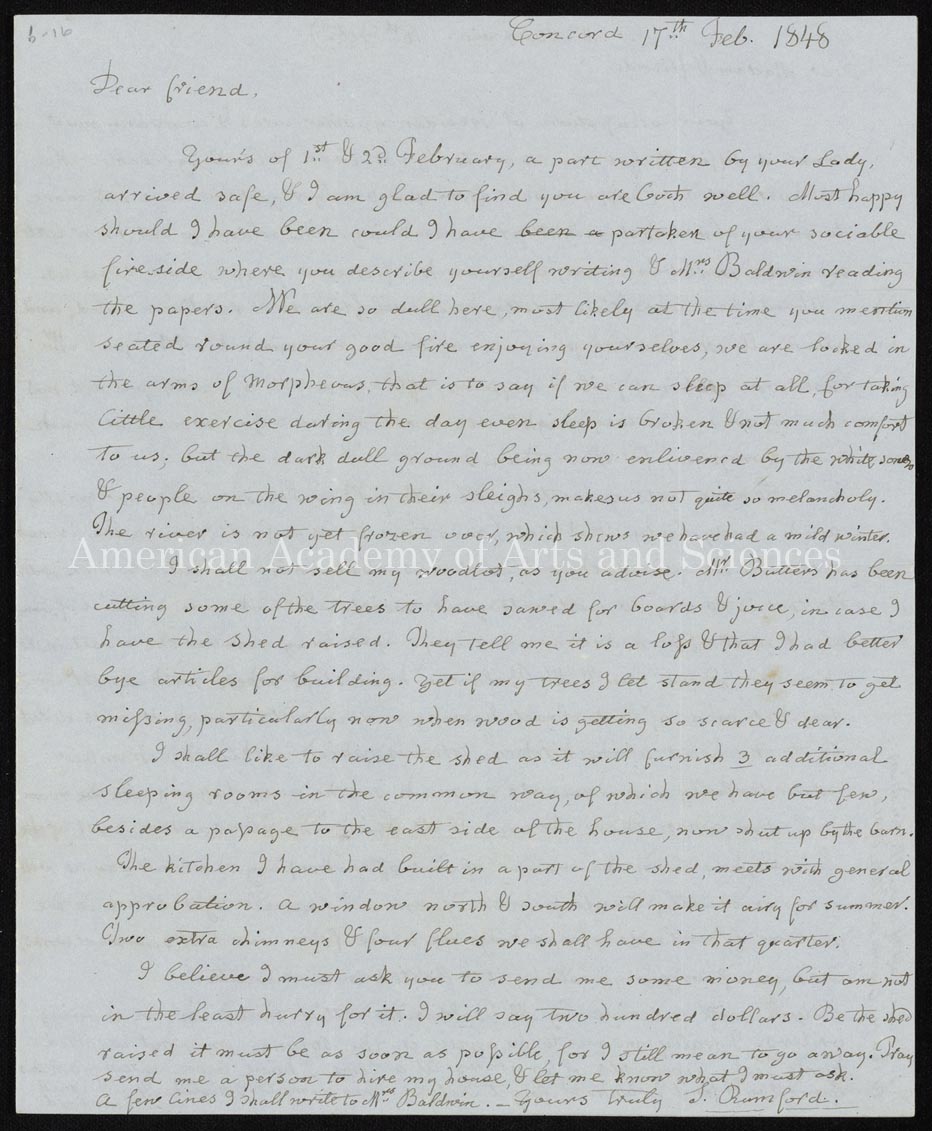 6-16
Concord 17th Feb. 1848
Dear friend,
Yours of 1st & 2d February, a part written by your Lady,
arrived safe, & I am glad to find you are both well. Most happy
should I have been could I have been a partaken of your sociable
fireside where you describe yourself writing & Mrs Baldwin reading
the papers. We are so dull here, most likely at the time you mention
seated round your good fire enjoying yourselves, we are locked in
the arms of Morpheous, that is to say if we can sleep at all, for taking
little exercise during the day even sleep is broken & not much comfort
to us; but the dark dull ground being now enlivened by the white snow
& people on the wing in their sleighs, makes us not quite so melancholy.
The river is not yet frozen over, which shews we have had a mild winter.
American Academy of Arts and Sciences
I shall not sell my woodlot, as you advise. Mr. Butters has been
cutting some of the trees to have sawed for boards & joice, in case I
have the shed raised. They tell me it is a loss & that I had better
bye articles for building. Yet if my trees I let stand they seem to get
missing, particularly now when wood is getting so scarce & dear.
I shall like to raise the shed as it will furnish 3 additional
sleeping rooms in the common way, of which we have but few,
besides a passage to the east side of the house, now shut up by the barn.
The kitchen I have had built in a part of the shed, meets with general
approbation. A window north & south will make it airy for summer.
Two extra chimneys & four flues we shall have in that quarter.
I believe I must ask you to send me some money, but am not
in the least hurry for it. I will say two hundred dollars. Be the shed
raised it must be as soon as possible, for I still mean to go away. Pray
send me a person to hire my house, & let me know what I must ask.
A few lines I shall write to Mrs Baldwin. — Yours truly S. Rumford.